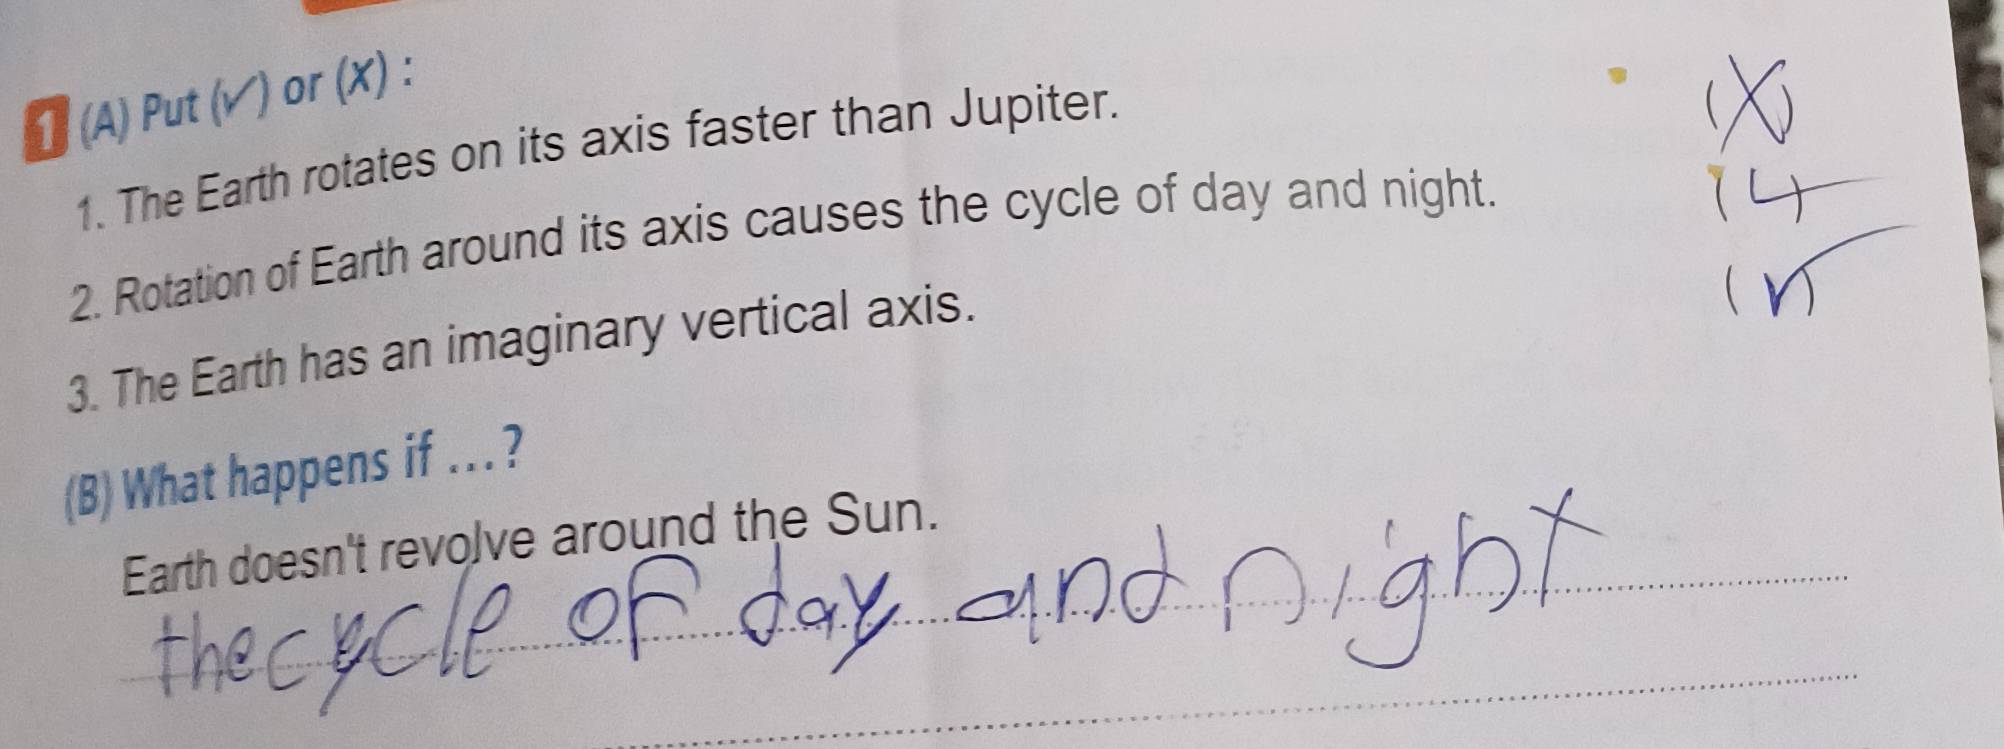 1 (A) Put (✓) or (X) :
1. The Earth rotates on its axis faster than Jupiter. (X)
2. Rotation of Earth around its axis causes the cycle of day and night. (✓)
3. The Earth has an imaginary vertical axis. (✓)
(B) What happens if ...?
Earth doesn't revolve around the Sun.
the cycle of day and night